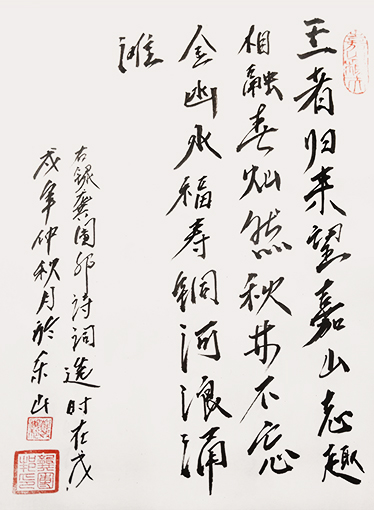 王者归来望嘉山志趣
相融春灿然秋井不忘
金幽水福寿铜河浪涌
滩
右银龚国邦诗词造时在戊
戌年仲秋月於乐山